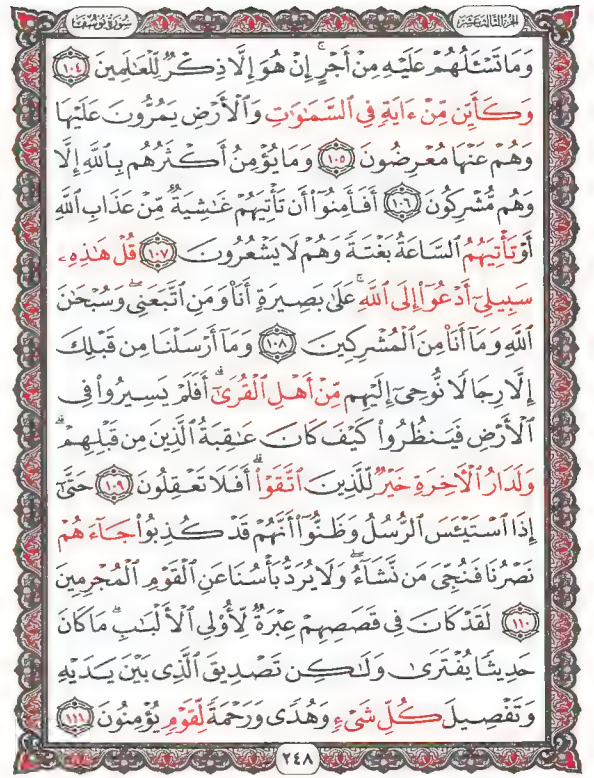 الجزء الثالث عشر
سورة يوسف
وَمَا تَسْـَٔلُهُمْ عَلَيْهِ مِنْ أَجْرٍ ۚ إِنْ هُوَ إِلَّا ذِكْرٌ لِّلْعَٰلَمِينَ ١٠٤
وَكَأَيِّن مِّنْ ءَايَةٍ فِى ٱلسَّمَٰوَٰتِ وَٱلْأَرْضِ يَمُرُّونَ عَلَيْهَا
وَهُمْ عَنْهَا مُعْرِضُونَ ١٠٥ وَمَا يُؤْمِنُ أَكْثَرُهُم بِٱللَّهِ إِلَّا
وَهُم مُّشْرِكُونَ ١٠٦ أَفَأَمِنُوٓا۟ أَن تَأْتِيَهُمْ غَٰشِيَةٌ مِّنْ عَذَابِ ٱللَّهِ
أَوْ تَأْتِيَهُمُ ٱلسَّاعَةُ بَغْتَةً وَهُمْ لَا يَشْعُرُونَ ١٠٧ قُلْ هَٰذِهِۦ
سَبِيلِىٓ أَدْعُوٓا۟ إِلَى ٱللَّهِ ۚ عَلَىٰ بَصِيرَةٍ أَنَا۠ وَمَنِ ٱتَّبَعَنِى ۖ وَسُبْحَٰنَ
ٱللَّهِ وَمَآ أَنَا۠ مِنَ ٱلْمُشْرِكِينَ ١٠٨ وَمَآ أَرْسَلْنَا مِن قَبْلِكَ
إِلَّا رِجَالًا نُّوحِىٓ إِلَيْهِم مِّنْ أَهْلِ ٱلْقُرَىٰٓ ۗ أَفَلَمْ يَسِيرُوا۟ فِى
ٱلْأَرْضِ فَيَنظُرُوا۟ كَيْفَ كَانَ عَٰقِبَةُ ٱلَّذِينَ مِن قَبْلِهِمْ ۗ
وَلَدَارُ ٱلْـَٔاخِرَةِ خَيْرٌ لِّلَّذِينَ ٱتَّقَوْا۟ ۗ أَفَلَا تَعْقِلُونَ ١٠٩ حَتَّىٰٓ
إِذَا ٱسْتَيْـَٔسَ ٱلرُّسُلُ وَظَنُّوٓا۟ أَنَّهُمْ قَدْ كُذِبُوا۟ جَآءَهُمْ
نَصْرُنَا فَنُجِّىَ مَن نَّشَآءُ ۖ وَلَا يُرَدُّ بَأْسُنَا عَنِ ٱلْقَوْمِ ٱلْمُجْرِمِينَ
١١٠ لَقَدْ كَانَ فِى قَصَصِهِمْ عِبْرَةٌ لِّأُو۟لِى ٱلْأَلْبَٰبِ ۗ مَا كَانَ
حَدِيثًا يُفْتَرَىٰ وَلَٰكِن تَصْدِيقَ ٱلَّذِى بَيْنَ يَدَيْهِ
وَتَفْصِيلَ كُلِّ شَىْءٍ وَهُدًى وَرَحْمَةً لِّقَوْمٍ يُؤْمِنُونَ ١١١
٢٤٨